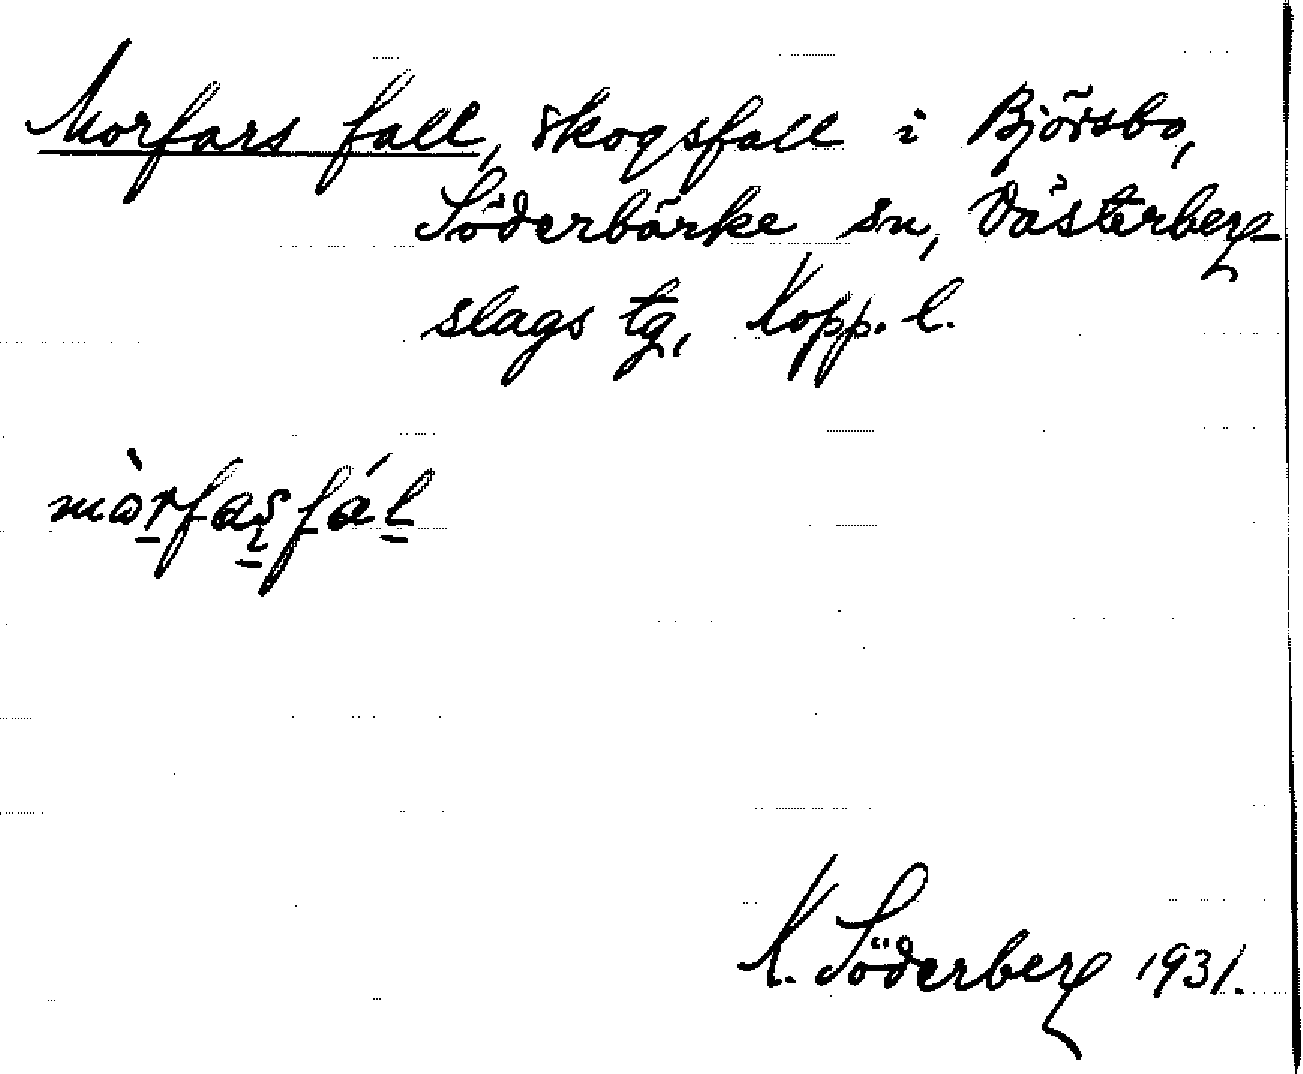 Morfars fall, skogsfall i Björsbo,
Söderbärke sn, Västerberg-
slags tg, Kopp. l.
mòrfaʂfál
K. Söderberg 1931.